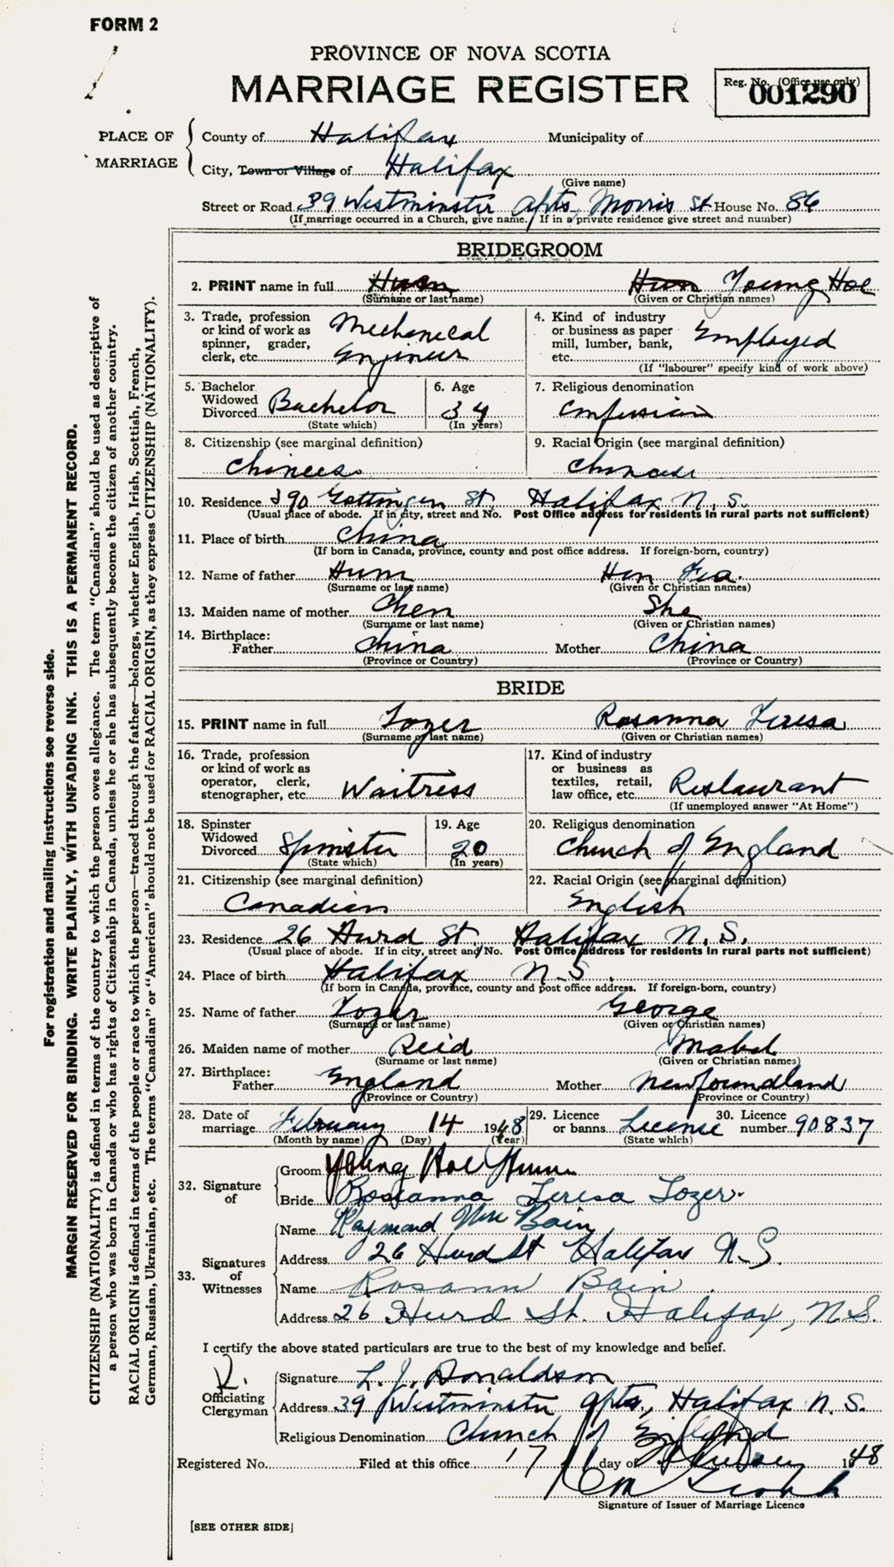 FORM 2
PROVINCE OF NOVA SCOTIA
MARRIAGE REGISTER
Reg. No. (Office use only)
001290
PLACE OF MARRIAGE
County of Halifax Municipality of
City, Town or Village of Halifax
(Give name)
Street or Road 39 Westminster Apts, Morris St House No. 86
(If marriage occurred in a Church, give name. If in a private residence give street and number)
BRIDEGROOM
2. PRINT name in full Hum Hum Young Hoe
(Surname or last name) (Given or Christian names)
3. Trade, profession or kind of work as spinner, grader, clerk, etc. Mechanical Engineer
4. Kind of industry or business as paper mill, lumber, bank, etc. Employed
(If "labourer" specify kind of work above)
5. Bachelor Widowed Divorced Bachelor
(State which)
6. Age 34
(In years)
7. Religious denomination
Confusian
8. Citizenship (see marginal definition)
Chinees
9. Racial Origin (see marginal definition)
Chinese
10. Residence 390 Gottingen St. Halifax N.S.
(Usual place of abode. If in city, street and No. Post Office address for residents in rural parts not sufficient)
11. Place of birth China
(If born in Canada, province, county and post office address. If foreign-born, country)
12. Name of father Hum Hon Fea.
(Surname or last name) (Given or Christian names)
13. Maiden name of mother Chen She
(Surname or last name) (Given or Christian names)
14. Birthplace: Father China Mother China
(Province or Country) (Province or Country)
BRIDE
15. PRINT name in full Tozer Rosanna Teresa
(Surname or last name) (Given or Christian names)
16. Trade, profession or kind of work as operator, clerk, stenographer, etc. Waitress
17. Kind of industry or business as textiles, retail, law office, etc. Restaurant
(If unemployed answer "At Home")
18. Spinster Widowed Divorced Spinster
(State which)
19. Age 20
(In years)
20. Religious denomination
Church of England
21. Citizenship (see marginal definition)
Canadian
22. Racial Origin (see marginal definition)
English
23. Residence 26 Hurd St. Halifax N.S.
(Usual place of abode. If in city, street and No. Post Office address for residents in rural parts not sufficient)
24. Place of birth Halifax N.S.
(If born in Canada, province, county and post office address. If foreign-born, country)
25. Name of father Tozer George
(Surname or last name) (Given or Christian names)
26. Maiden name of mother Reid Mabel
(Surname or last name) (Given or Christian names)
27. Birthplace: Father England Mother Newfoundland
(Province or Country) (Province or Country)
28. Date of marriage February 14 1948
(Month by name) (Day) (Year)
29. Licence or banns License
(State which)
30. Licence number 90837
32. Signature of
Groom Young Hoe Hum
Bride Rosanna Teresa Tozer.
33. Signatures of Witnesses
Name Raymond Bain
Address 26 Hurd St Halifax N.S.
Name Rosann Bain
Address 26 Hurd St. Halifax, N.S.
I certify the above stated particulars are true to the best of my knowledge and belief.
Officiating Clergyman
Signature L. J. Donaldson
Address 39 Westminster Apts., Halifax N.S.
Religious Denomination Church of England
Registered No. Filed at this office 17 day of February 1948
Signature of Issuer of Marriage Licence
[SEE OTHER SIDE]
For registration and mailing instructions see reverse side.
MARGIN RESERVED FOR BINDING. WRITE PLAINLY, WITH UNFADING INK. THIS IS A PERMANENT RECORD.
CITIZENSHIP (NATIONALITY) is defined in terms of the country to which the person owes allegiance. The term "Canadian" should be used as descriptive of
a person who was born in Canada or who has rights of Citizenship in Canada, unless he or she has subsequently become the citizen of another country.
RACIAL ORIGIN is defined in terms of the people or race to which the person—traced through the father—belongs, whether English, Irish, Scottish, French,
German, Russian, Ukrainian, etc. The terms "Canadian" or "American" should not be used for RACIAL ORIGIN, as they express CITIZENSHIP (NATIONALITY).